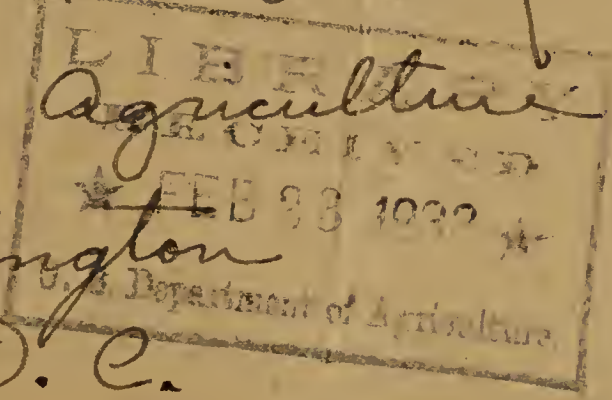 LIBRARY
Agriculture
RECEIVED
★ FEB 23 ★
ngton
U. S. Department of Agriculture
D. C.